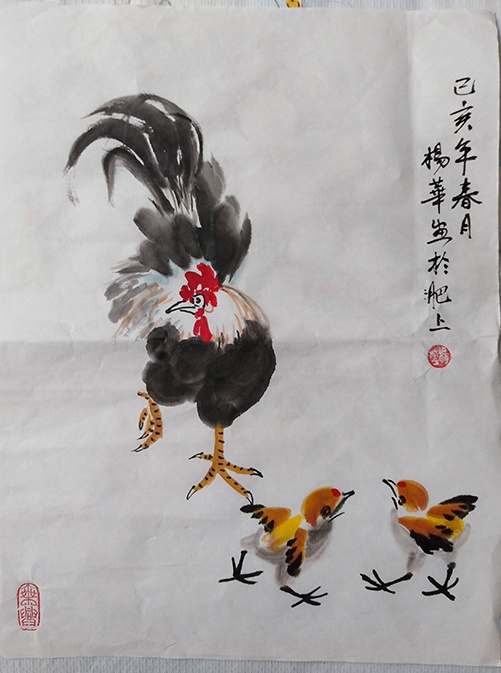 己亥年春月
楊華畫於淝上